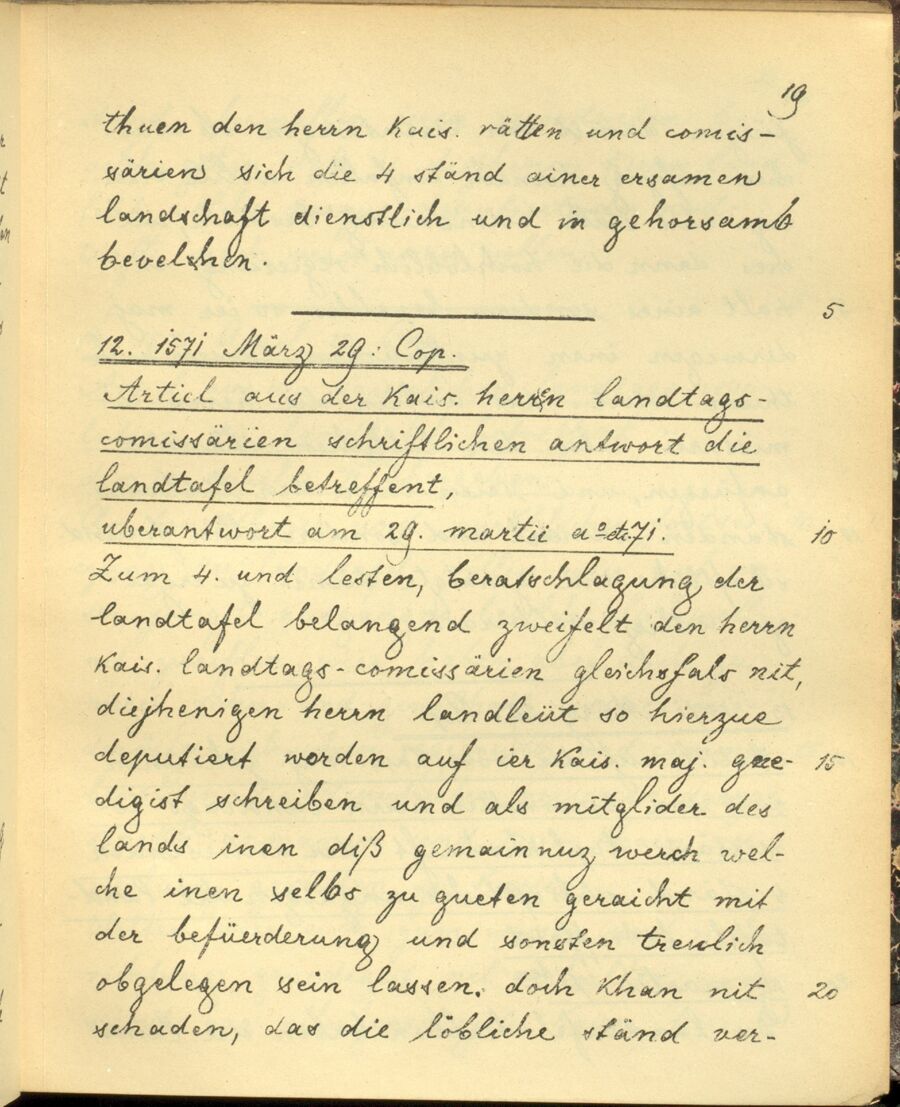 19
thuen den herrn Kais. rätten und comis-
särien sich die 4 ständ ainer ersamen
landschaft dienstlich und in gehorsamb
bevelchen.
5
12. 1571 März 29: Cop.
Articl aus der Kais. herrn landtags-
comissärien schriftlichen antwort die
landtafel betreffent,
uberantwort am 29. martii aº 71. 10
Zum 4. und lesten, beratschlagung der
landtafel belangend zweifelt den herrn
Kais. landtags-comissärien gleichsfals nit,
diejhenigen herrn landleüt so hierzue
deputiert worden auf ier Kais. maj. gne- 15
digist schreiben und als mitglider des
lands inen diß gemainnuz werch wel-
che inen selbs zu gueten geraicht mit
der befüerderung und sonsten treulich
obgelegen sein lassen. doch khan nit 20
schaden, das die löbliche ständ ver-